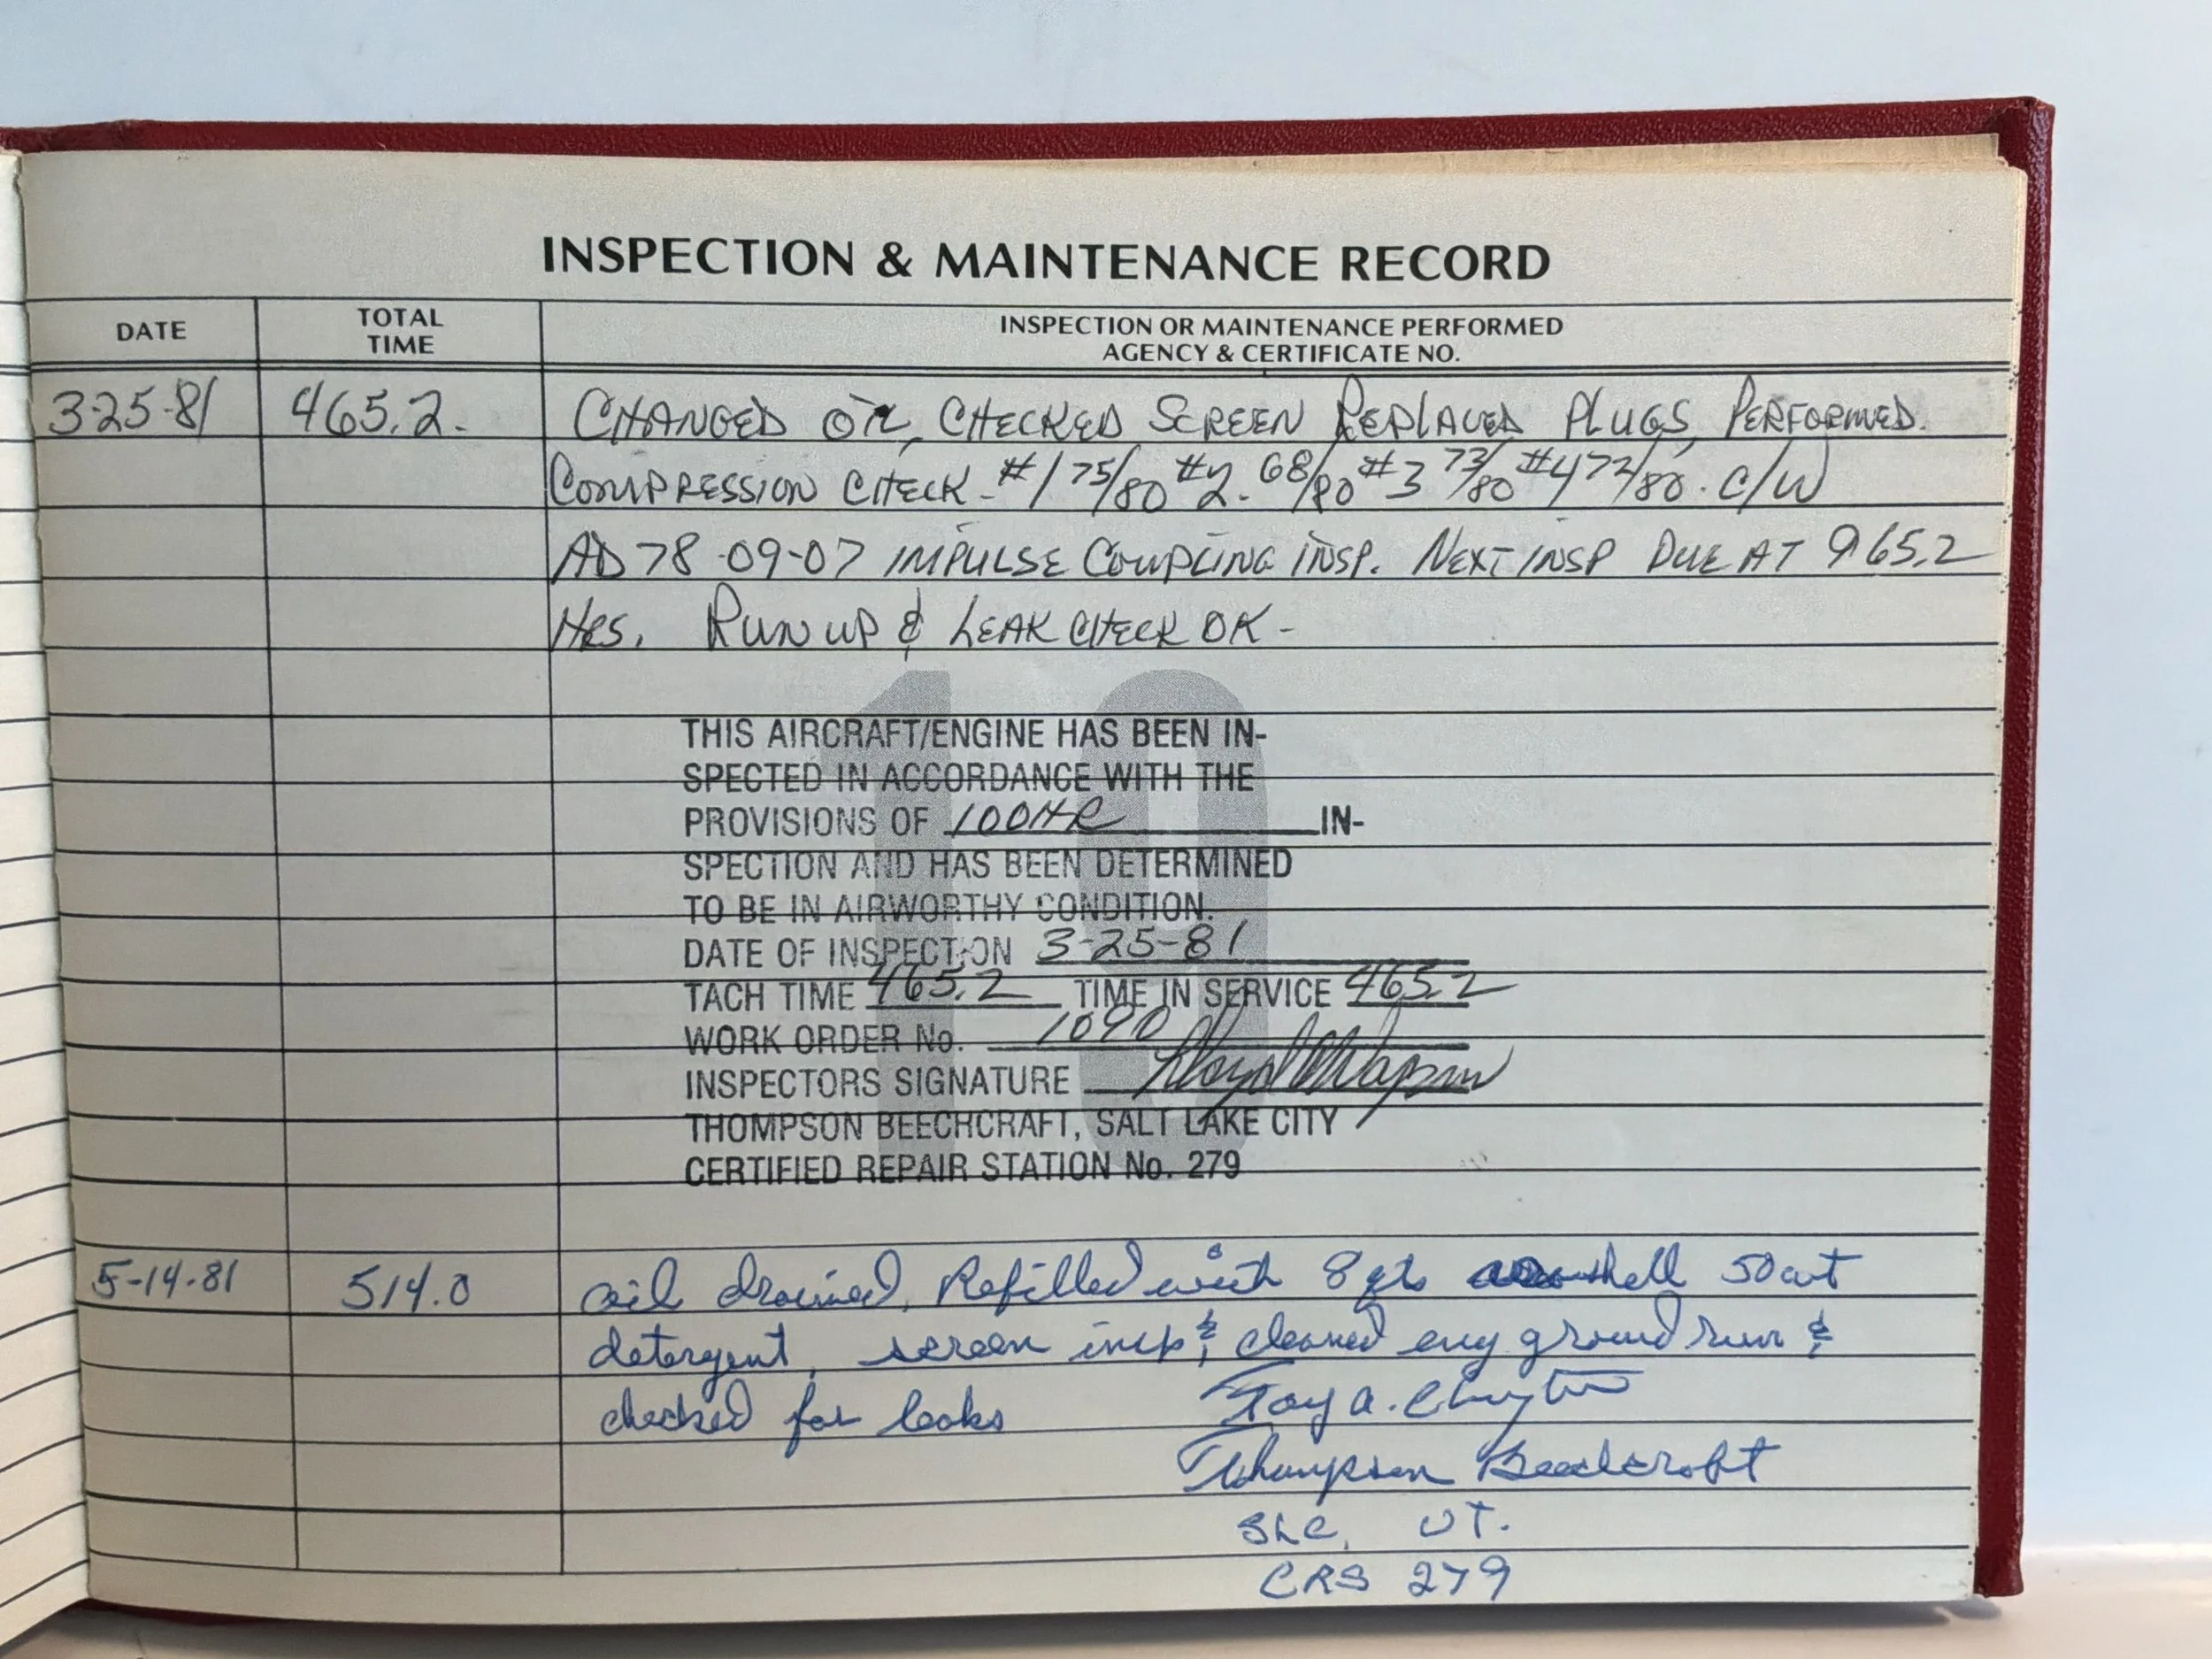 INSPECTION & MAINTENANCE RECORD
DATE
TOTAL
TIME
INSPECTION OR MAINTENANCE PERFORMED
AGENCY & CERTIFICATE NO.
3-25-81 465.2. CHANGED OIL, CHECKED SCREEN REPLACED PLUGS, PERFORMED.
COMPRESSION CHECK - #1 75/80 #2. 68/80 #3 73/80 #4 72/80. C/W
AD 78-09-07 IMPULSE COUPLING INSP. NEXT INSP DUE AT 965.2
HRS. RUN UP & LEAK CHECK OK -
19
THIS AIRCRAFT/ENGINE HAS BEEN IN-
SPECTED IN ACCORDANCE WITH THE
PROVISIONS OF 100HR IN-
SPECTION AND HAS BEEN DETERMINED
TO BE IN AIRWORTHY CONDITION.
DATE OF INSPECTION 3-25-81
TACH TIME 465.2 TIME IN SERVICE 465.2
WORK ORDER No. 1090
INSPECTORS SIGNATURE Lloyd
THOMPSON BEECHCRAFT, SALT LAKE CITY
CERTIFIED REPAIR STATION No. 279
5-14-81 514.0 oil drained, Refilled with 8 qts shell 50 wt
detergent, screen insp & cleaned eng ground run &
checked for leaks
a.
Thompson Beechcroft
SLC, UT.
CRS 279